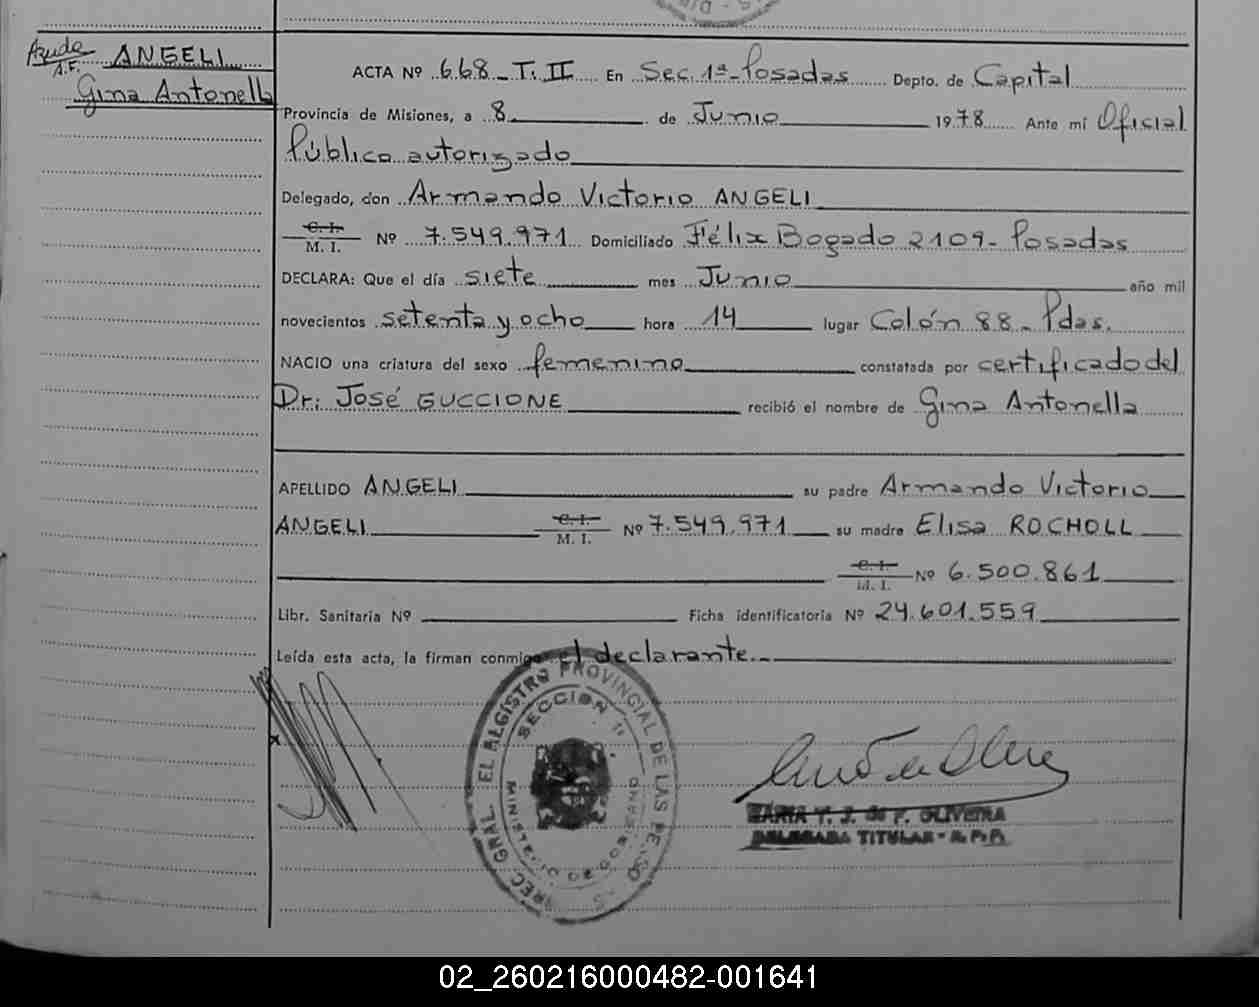 Ayude ANGELI
A.F.
Gina Antonella
ACTA Nº 668 - T. II En Sec. 1ª - Posadas Depto. de Capital
Provincia de Misiones, a 8 de Junio 1978 Ante mí Oficial
Público autorizado
Delegado, don Armando Victorio ANGELI
C. I.
M. I. Nº 7.549.971 Domiciliado Félix Bogado 2109 - Posadas
DECLARA: Que el día siete mes Junio año mil
novecientos setenta y ocho hora 14 lugar Colón 88 - Pdas.
NACIO una criatura del sexo femenino constatada por certificado del
Dr. José GUCCIONE recibió el nombre de Gina Antonella
APELLIDO ANGELI su padre Armando Victorio
ANGELI C. I. M. I. Nº 7.549.971 su madre Elisa ROCHOLL
C. I. M. I. Nº 6.500.861
Libr. Sanitaria Nº Ficha identificatoria Nº 24.601.559
Leída esta acta, la firman conmigo el declarante.-
REGISTRO PROVINCIAL DE LAS PERSONAS
SECCION
MINISTERIO DE GOBIERNO
MARIA T. J. de F. OLIVEIRA
DELEGADA TITULAR - R.P.P.
02_260216000482-001641